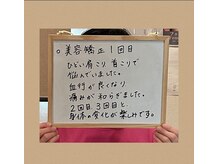 ○美容矯正1回目
ひどい肩こり 首こりで
悩んでいました。
血行が良くなり
痛みが和らぎました。
2回目 3回目と
身体の変化が楽しみです。